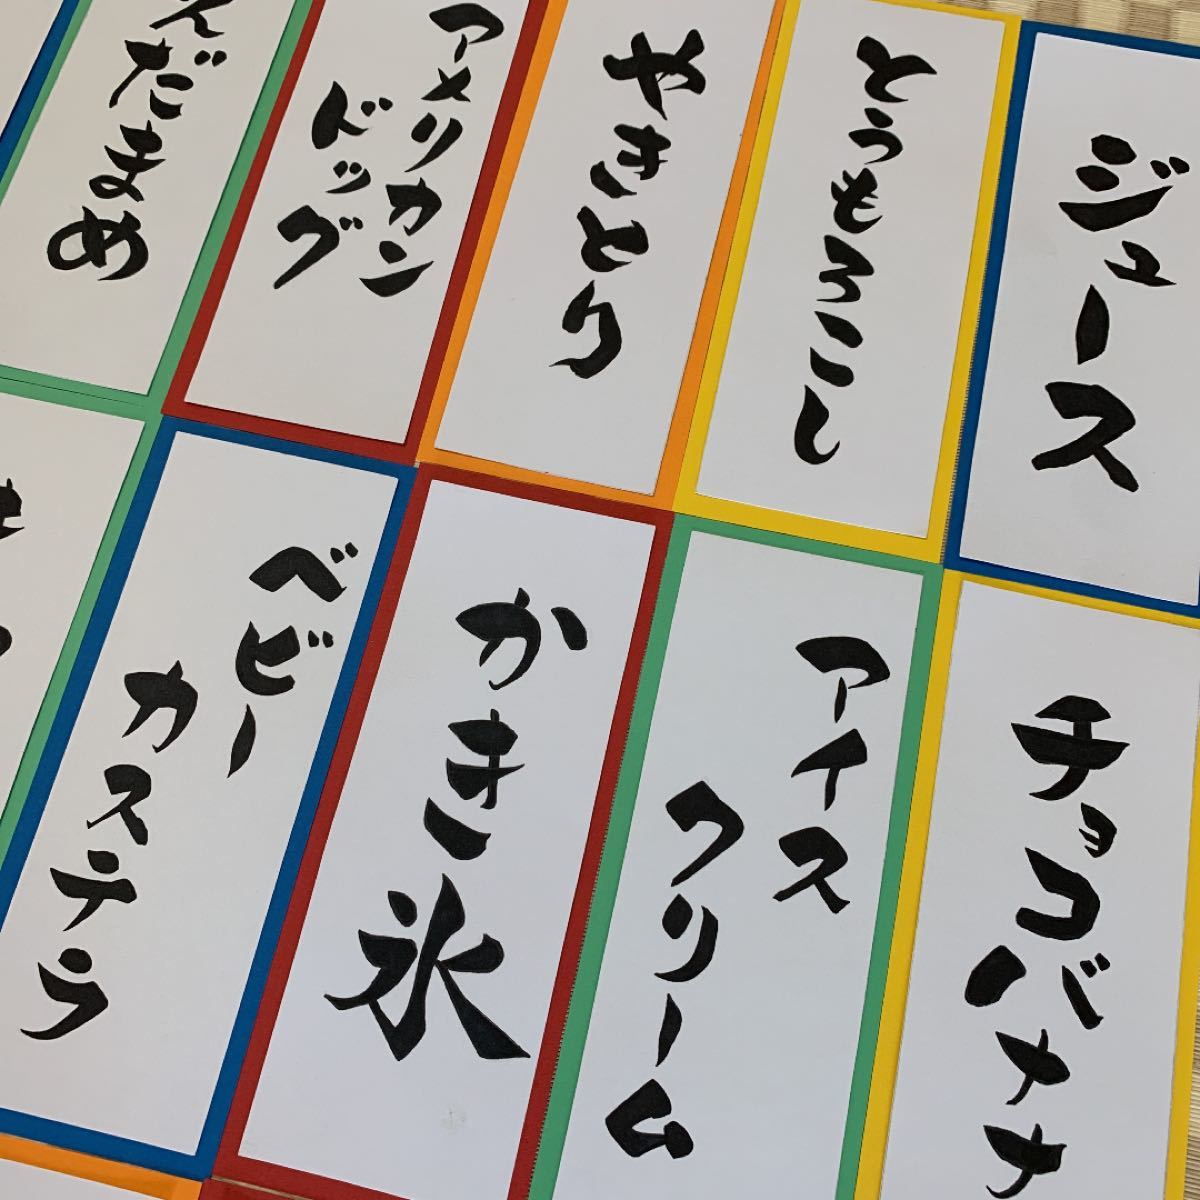 ジュース
とうもろこし
やきとり
アメリカン
ドッグ
えだまめ
チョコバナナ
アイス
クリーム
かき氷
ベビー
カステラ